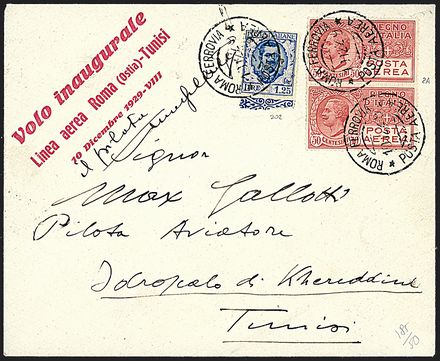 Volo inaugurale
Linea aerea Roma (Ostia)-Tunisi
10 Dicembre 1929-VIII
il pilota
Signor
Max Gallotti
Pilota Aviatore
Idroscalo di Khereddine
Tunisi
LIRE 1,25
REGNO D'ITALIA
POSTA AEREA
50 CENTESIMI
POSTA AEREA
ROMA FERROVIA
ROMA FERROVIA
POSTA AEREA
ROMA FERROVIA
POSTA AEREA
202
2A